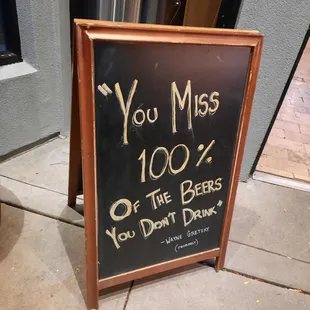 "You Miss
100%
Of The Beers
You Don't Drink"
- Wayne Gretzky
(probably)